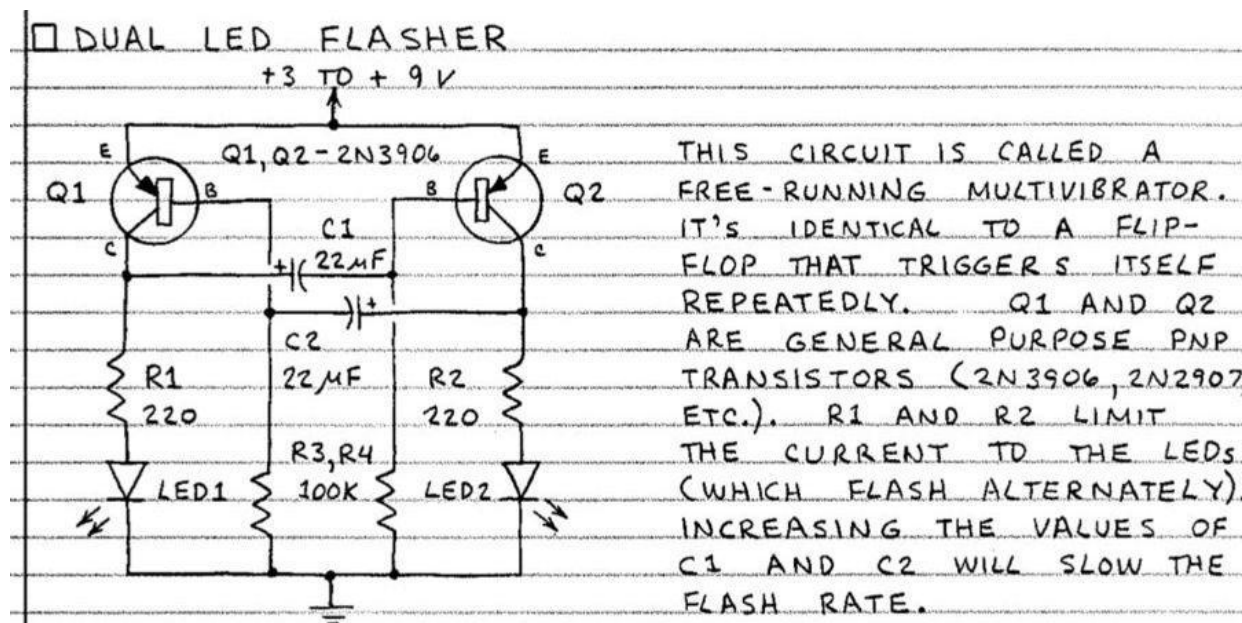 □ DUAL LED FLASHER
+3 TO + 9 V
E
Q1, Q2 - 2N3906
E
Q1
B
B
Q2
C
C1
C
+
22µF
+
C2
22µF
R1
220
R2
220
R3, R4
100K
LED1
LED2
THIS CIRCUIT IS CALLED A
FREE-RUNNING MULTIVIBRATOR.
IT'S IDENTICAL TO A FLIP-
FLOP THAT TRIGGERS ITSELF
REPEATEDLY. Q1 AND Q2
ARE GENERAL PURPOSE PNP
TRANSISTORS (2N3906, 2N2907,
ETC.). R1 AND R2 LIMIT
THE CURRENT TO THE LEDs
(WHICH FLASH ALTERNATELY).
INCREASING THE VALUES OF
C1 AND C2 WILL SLOW THE
FLASH RATE.